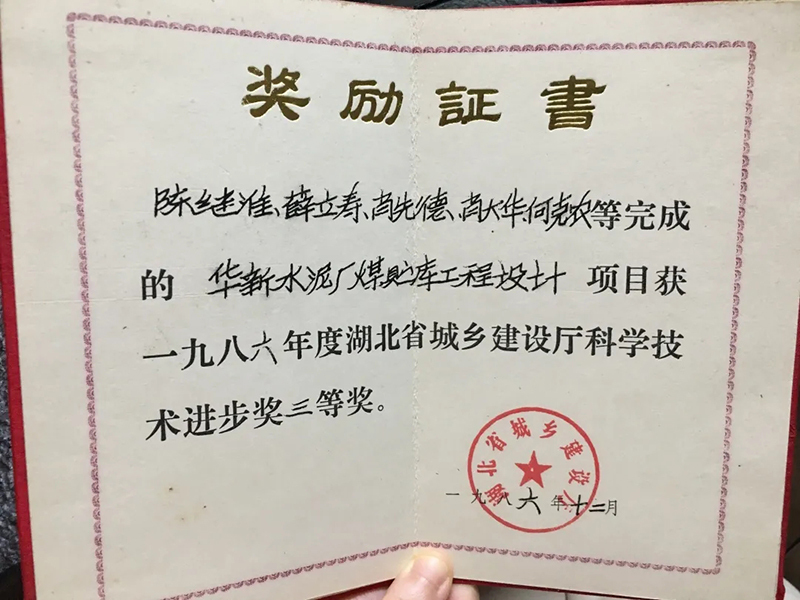 奖励証書
陈继淮、薛立寿、肖先德、肖大华何克农等完成
的 华新水泥厂煤贮库工程设计 项目获
一九八六年度湖北省城乡建设厅科学技
术进步奖三等奖。
湖北省城乡建设厅
一九八六年十二月